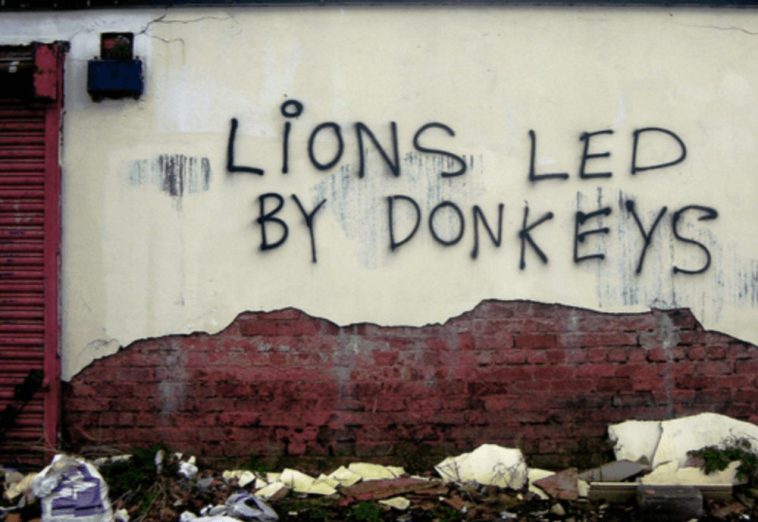 LiONS LED
BY DONKEYS